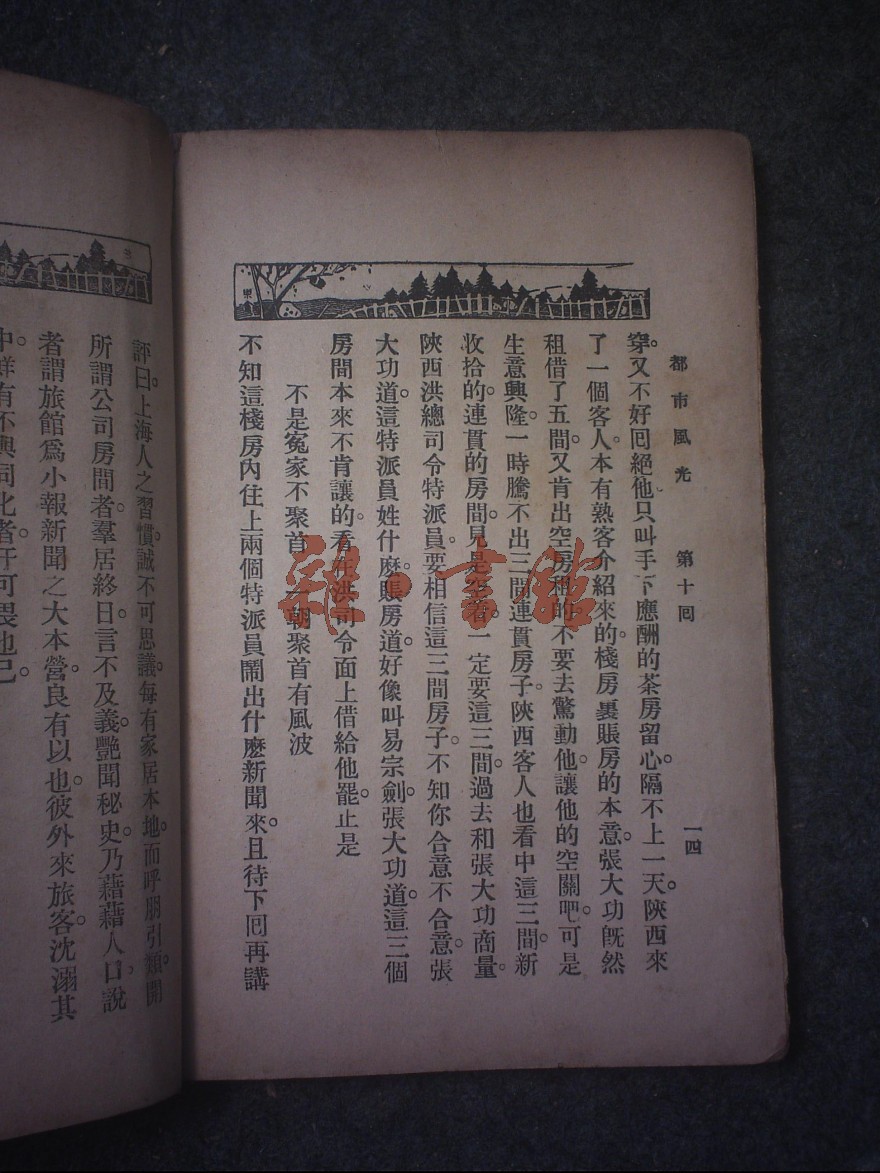 都市風光 第十回 一四
穿。又不好回絕他。只叫手下應酬的茶房留心。隔不上一天。陝西來
了一個客人。本有熟客介紹來的。棧房裏賬房的本意。張大功旣然
租借了五間。又肯出空房租的。不要去驚動他。讓他的空關吧。可是
生意興隆。一時騰不出三間連貫房子。陝西客人也看中這三間新
收拾的。連貫的房間。見是空着。一定要這三間。過去和張大功商量。
陝西洪總司令特派員。要相信這三間房子。不知你合意不合意。張
大功道。這特派員姓什麼。賬房道。好像叫易宗劍。張大功道。這三個
房間本來不肯讓的。看在洪司令面上。借給他罷。止是
不是寃家不聚首 一朝聚首有風波
不知這棧房內住上兩個特派員鬧出什麼新聞來。且待下回再講
評曰。上海人之習慣。誠不可思議。每有家居本地。而呼朋引類。開
所謂公司房間者。羣居終日。言不及義。艷聞秘史。乃藉藉人口。說
者謂旅館爲小報新聞之大本營。良有以也。彼外來旅客。沈溺其
中。鮮有不與同化者。可畏也已。